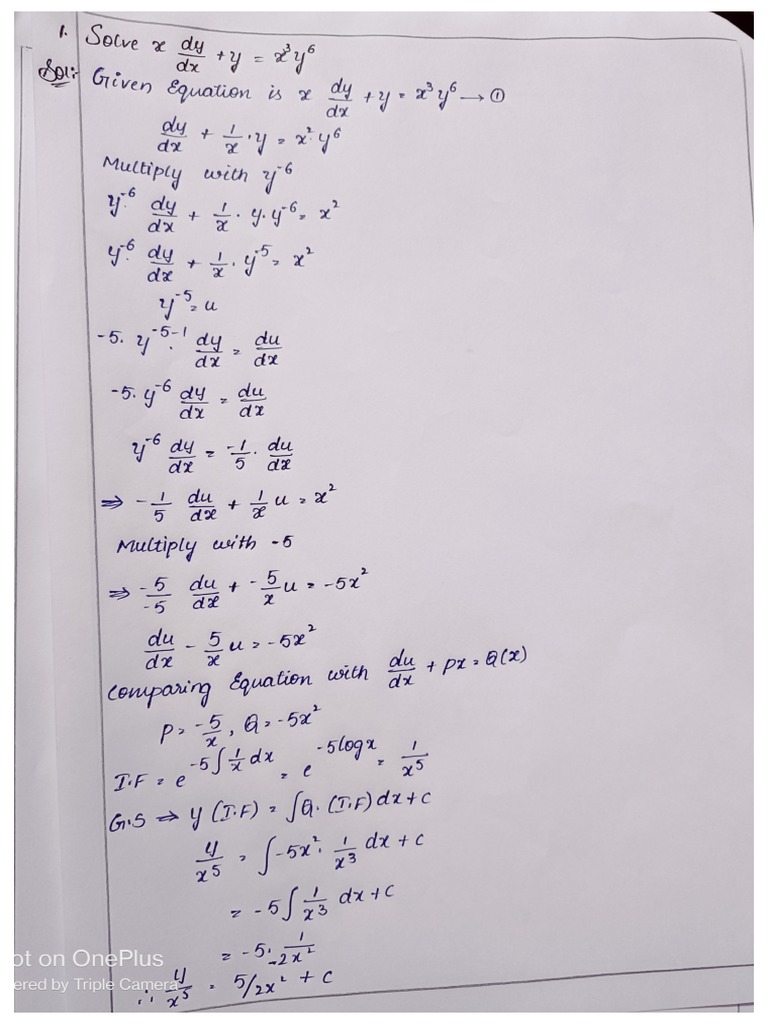 1. Solve x dy/dx + y = x³y⁶
Sol:- Given Equation is x dy/dx + y = x³y⁶ → ①
dy/dx + 1/x · y = x² · y⁶
Multiply with y⁻⁶
y⁻⁶ · dy/dx + 1/x · y · y⁻⁶ = x²
y⁻⁶ · dy/dx + 1/x · y⁻⁵ = x²
y⁻⁵ = u
-5 · y⁻⁵⁻¹ · dy/dx = du/dx
-5 · y⁻⁶ dy/dx = du/dx
y⁻⁶ dy/dx = -1/5 · du/dx
⇒ -1/5 du/dx + 1/x u = x²
Multiply with -5
⇒ -5/-5 du/dx + -5/x u = -5x²
du/dx - 5/x u = -5x²
Comparing Equation with du/dx + px = Q(x)
P = -5/x, Q = -5x²
I.F = e^(-5∫1/x dx) = e^(-5logx) = 1/x⁵
G.S ⇒ y (I.F) = ∫Q · (I.F) dx + c
y/x⁵ = ∫-5x² · 1/x³ dx + c
= -5∫ 1/x³ dx + c
= -5 · 1/-2x²
∴ y/x⁵ = 5/2x² + c
ot on OnePlus
ered by Triple Camera